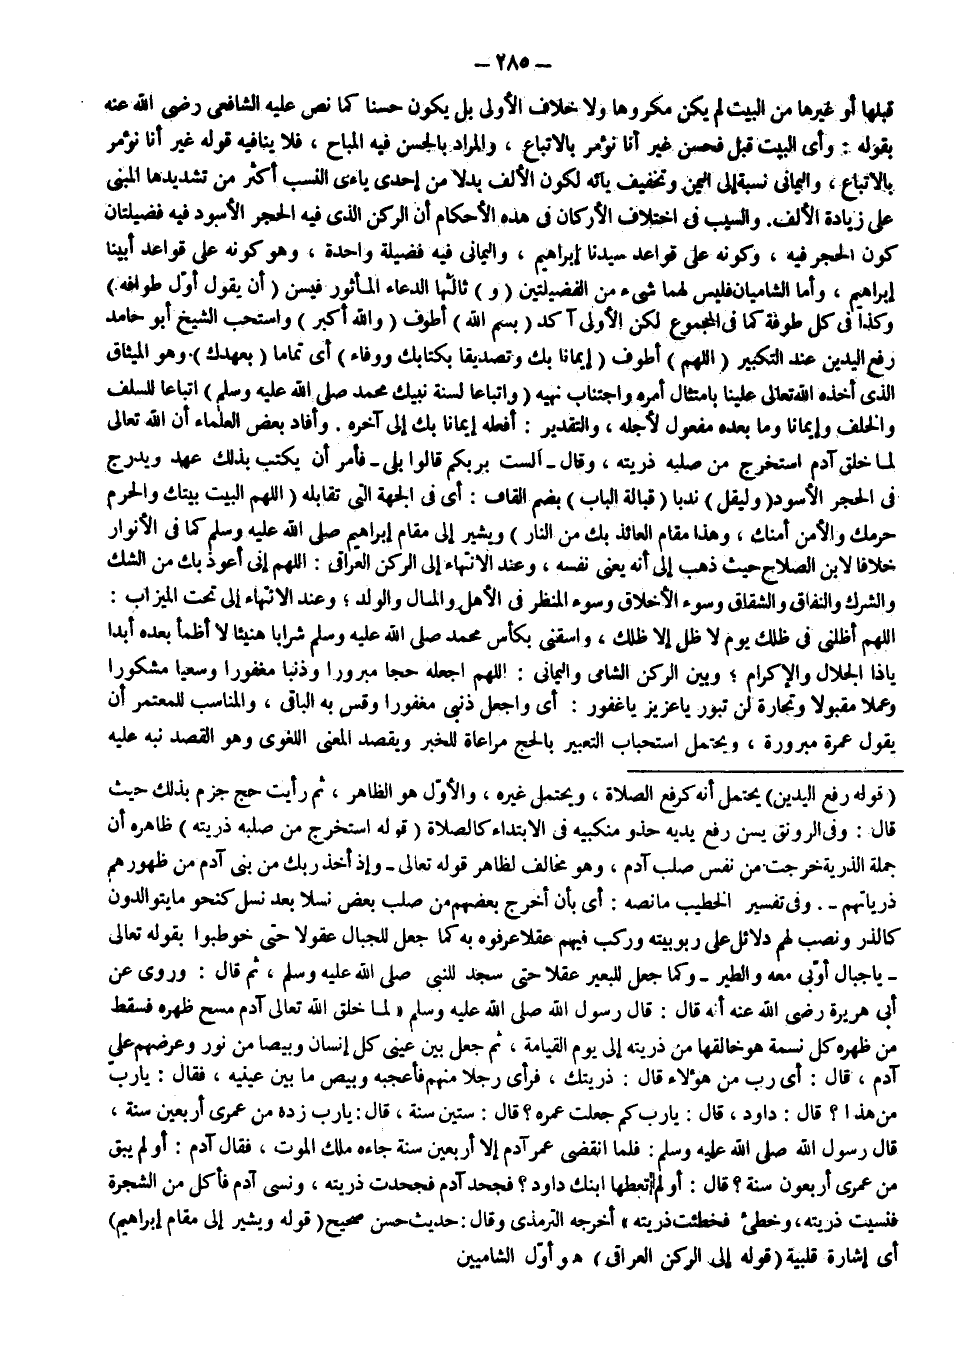 — ٢٨٥ —
قبلها أو غيرها من البيت لم يكن مكروها ولا خلاف الأولى بل يكون حسنا كما نص عليه الشافعى رضى الله عنه
بقوله : وأى البيت قبل فحسن غير أنا نؤمر بالاتباع ، والمراد بالحسن فيه المباح ، فلا ينافيه قوله غير أنا نؤمر
بالاتباع ، واليمانى نسبة إلى اليمن وتخفيف يائه لكون الألف بدلا من إحدى ياءى النسب أكثر من تشديدها المبنى
على زيادة الألف. والسبب فى اختلاف الأركان فى هذه الأحكام أن الركن الذى فيه الحجر الأسود فيه فضيلتان
كون الحجر فيه ، وكونه على قواعد سيدنا إبراهيم ، واليمانى فيه فضيلة واحدة ، وهو كونه على قواعد أبينا
إبراهيم ، وأما الشاميان فليس لهما شىء من الفضيلتين ( و ) ثالثها الدعاء المأثور فيسن ( أن يقول أوّل طوافه )
وكذا فى كل طوفة كما فى المجموع لكن الأولى آكد ( بسم الله ) أطوف ( والله أكبر ) واستحب الشيخ أبو حامد
رفع اليدين عند التكبير ( اللهم ) أطوف ( إيمانا بك وتصديقا بكتابك ووفاء ) أى تماما ( بعهدك ) وهو الميثاق
الذى أخذه الله تعالى علينا بامتثال أمره واجتناب نهيه ( واتباعا لسنة نبيك محمد صلى الله عليه وسلم ) اتباعا للسلف
والخلف وإيمانا وما بعده مفعول لأجله ، والتقدير : أفعله إيمانا بك إلى آخره . وأفاد بعض العلماء أن الله تعالى
لما خلق آدم استخرج من صلبه ذريته ، وقال ـ ألست بربكم قالوا بلى ـ فأمر أن يكتب بذلك عهد ويدرج
فى الحجر الأسود ( وليقل ) ندبا ( قبالة الباب ) بضم القاف : أى فى الجهة التى تقابله ( اللهم البيت بيتك والحرم
حرمك والأمن أمنك ، وهذا مقام العائذ بك من النار ) ويشير إلى مقام إبراهيم صلى الله عليه وسلم كما فى الأنوار
خلافا لابن الصلاح حيث ذهب إلى أنه يعنى نفسه ، وعند الانتهاء إلى الركن العراقى : اللهم إنى أعوذ بك من الشك
والشرك والنفاق والشقاق وسوء الأخلاق وسوء المنظر فى الأهل والمال والولد ؛ وعند الانتهاء إلى تحت الميزاب :
اللهم أظلنى فى ظلك يوم لا ظل إلا ظلك ، واسقنى بكأس محمد صلى الله عليه وسلم شرابا هنيئا لا أظمأ بعده أبدا
ياذا الجلال والإكرام ؛ وبين الركن الشامى واليمانى : اللهم اجعله حجا مبرورا وذنبا مغفورا وسعيا مشكورا
وعملا مقبولا وتجارة لن تبور ياعزيز ياغفور : أى واجعل ذنبى مغفورا وقس به الباقى ، والمناسب للمعتمر أن
يقول عمرة مبرورة ، ويحتمل استحباب التعبير بالحج مراعاة للخبر ويقصد المعنى اللغوى وهو القصد نبه عليه
( قوله رفع اليدين ) يحتمل أنه كرفع الصلاة ، ويحتمل غيره ، والأوّل هو الظاهر ، ثم رأيت حج جزم بذلك حيث
قال : وفى الرونق يسن رفع يديه حذو منكبيه فى الابتداء كالصلاة ( قوله استخرج من صلبه ذريته ) ظاهره أن
جملة الذرية خرجت من نفس صلب آدم ، وهو مخالف لظاهر قوله تعالى ـ وإذ أخذ ربك من بنى آدم من ظهورهم
ذرياتهم ـ . وفى تفسير الخطيب ما نصه : أى بأن أخرج بعضهم من صلب بعض نسلا بعد نسل كنحو ما يتوالدون
كالذر ونصب لهم دلائل على ربوبيته وركب فيهم عقلا عرفوه به كما جعل للجبال عقولا حتى خوطبوا بقوله تعالى
ـ ياجبال أوّبى معه والطير ـ وكما جعل للبعير عقلا حتى سجد للنبى صلى الله عليه وسلم ، ثم قال : وروى عن
أبى هريرة رضى الله عنه أنه قال : قال رسول الله صلى الله عليه وسلم « لما خلق الله تعالى آدم مسح ظهره فسقط
من ظهره كل نسمة هو خالقها من ذريته إلى يوم القيامة ، ثم جعل بين عينى كل إنسان وبيصا من نور وعرضهم على
آدم ، قال : أى رب من هؤلاء قال : ذريتك ، فرأى رجلا منهم فأعجبه وبيص ما بين عينيه ، فقال : يارب
من هذا ؟ قال : داود ، قال : يارب كم جعلت عمره ؟ قال : ستين سنة ، قال : يارب زده من عمرى أربعين سنة ،
قال رسول الله صلى الله عليه وسلم : فلما انقضى عمر آدم إلا أربعين سنة جاءه ملك الموت ، فقال آدم : أو لم يبق
من عمرى أربعون سنة ؟ قال : أو لم تعطها ابنك داود ؟ فجحد آدم فجحدت ذريته ، ونسى آدم فأكل من الشجرة
فنسيت ذريته ، وخطئ فخطئت ذريته » أخرجه الترمذى وقال : حديث حسن صحيح ( قوله ويشير إلى مقام إبراهيم )
أى إشارة قلبية ( قوله إلى الركن العراقى ) هو أوّل الشاميين